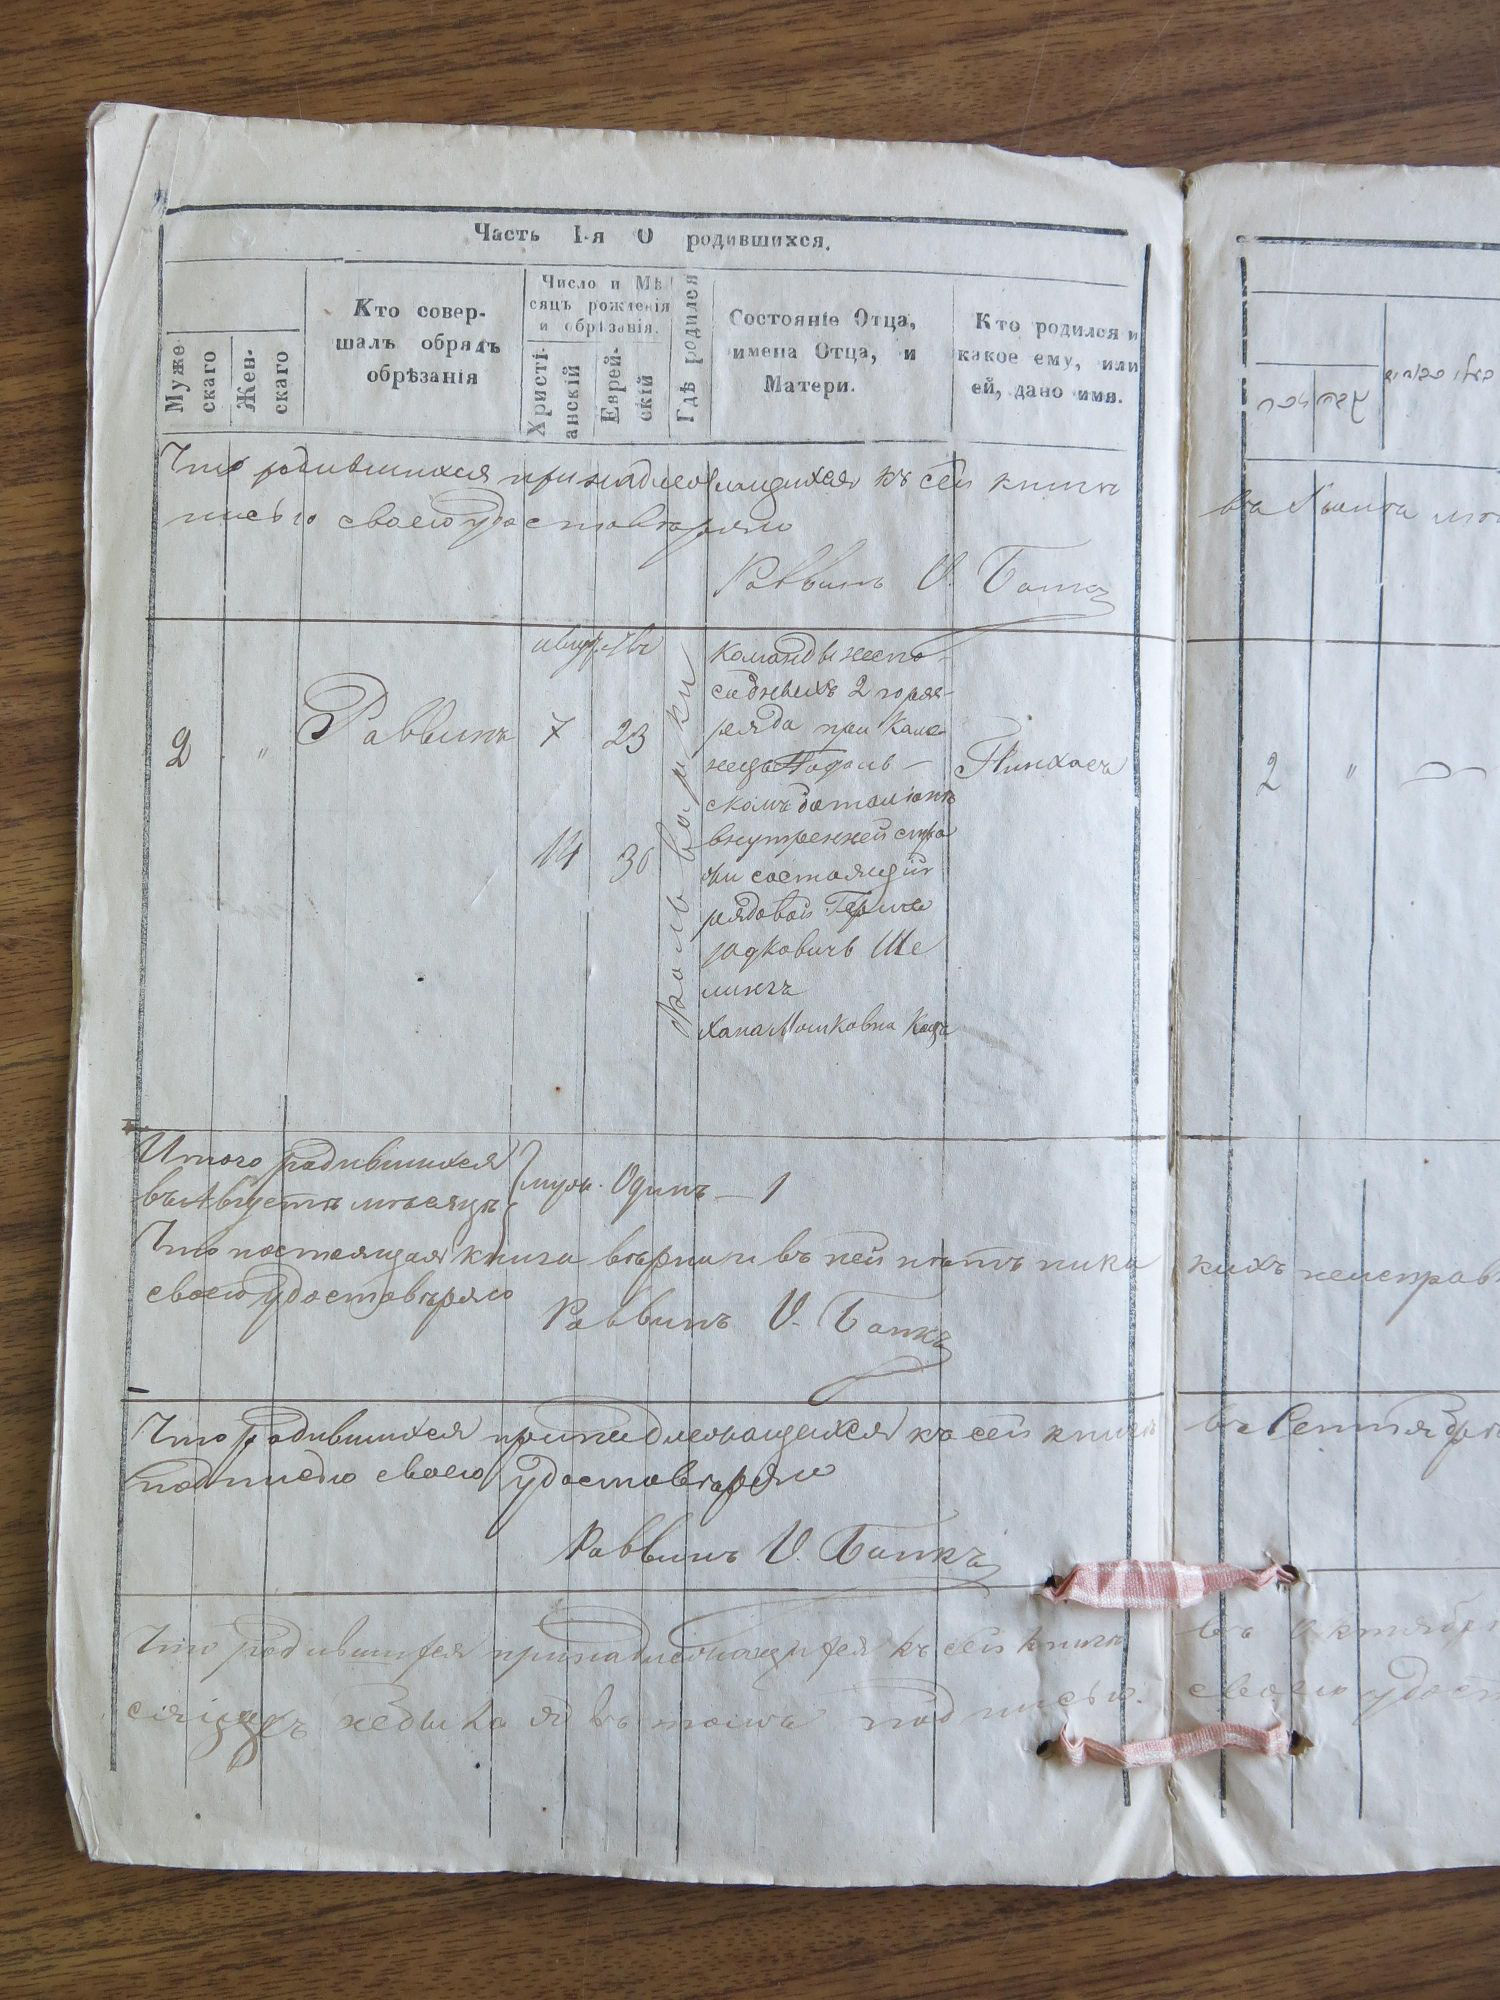 Часть I-я О родившихся.
Муже
скаго
Жен-
скаго
Кто совер-
шалъ обрядъ
обрѣзанія
Число и Мѣ
сяцъ рожденія
и обрѣзанія.
Христі-
анскій
Еврей-
скій
Гдѣ родился
Состояніе Отца,
имена Отца, и
Матери.
Кто родился и
какое ему, или
ей, дано имя.
Что родившихся принадлежащихся къ сей книги
писью своею удостовѣряю
Раввинъ И. Банкъ
2 " Раввинъ 7 23
14 30
команды неспо-
собныхъ 2 го раз-
ряда при Каме-
нецъ Подоль-
скомъ баталіонѣ
внутренней стра
жи состоящій
рядовой
Ше
Хана Мошковна
Пинхасъ
2 "
Итого родившихся
въ Августѣ мѣсяцѣ
муж. Одинъ — 1
Что настоящая книга вѣрна и въ ней нѣтъ ника кихъ неисправ
своею удостовѣряю
Раввинъ И. Банкъ
Что родившихся принадлежащихся къ сей книгѣ въ Сентябрѣ
подписью своею удостовѣряю
Раввинъ И. Банкъ
Что родившихся принадлежащихся къ сей книгѣ въ Октябрѣ
не было я въ томъ подписью своею удост